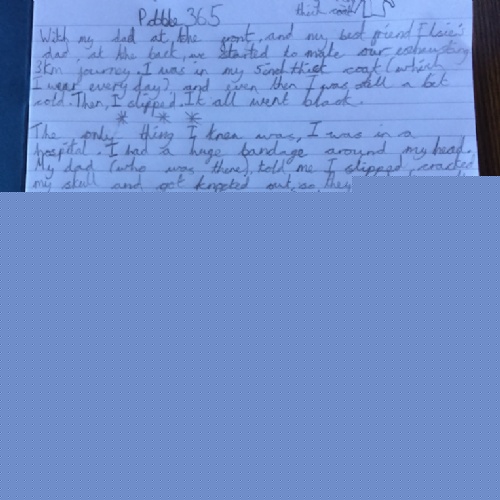 Pobble 365
thick coat
With my dad at the front, and my best friend Elsie's
dad, at the back, we started to make our exhausting
3km journey. I was in my thick coat (which
I wear every day) and even then I was still a bit
cold. Then, I slipped. It all went black.
* * *
The only thing I knew was, I was in a
hospital. I had a huge bandage around my head.
My dad (who was there), told me I slipped, cracked
my skull and got knocked out, so they